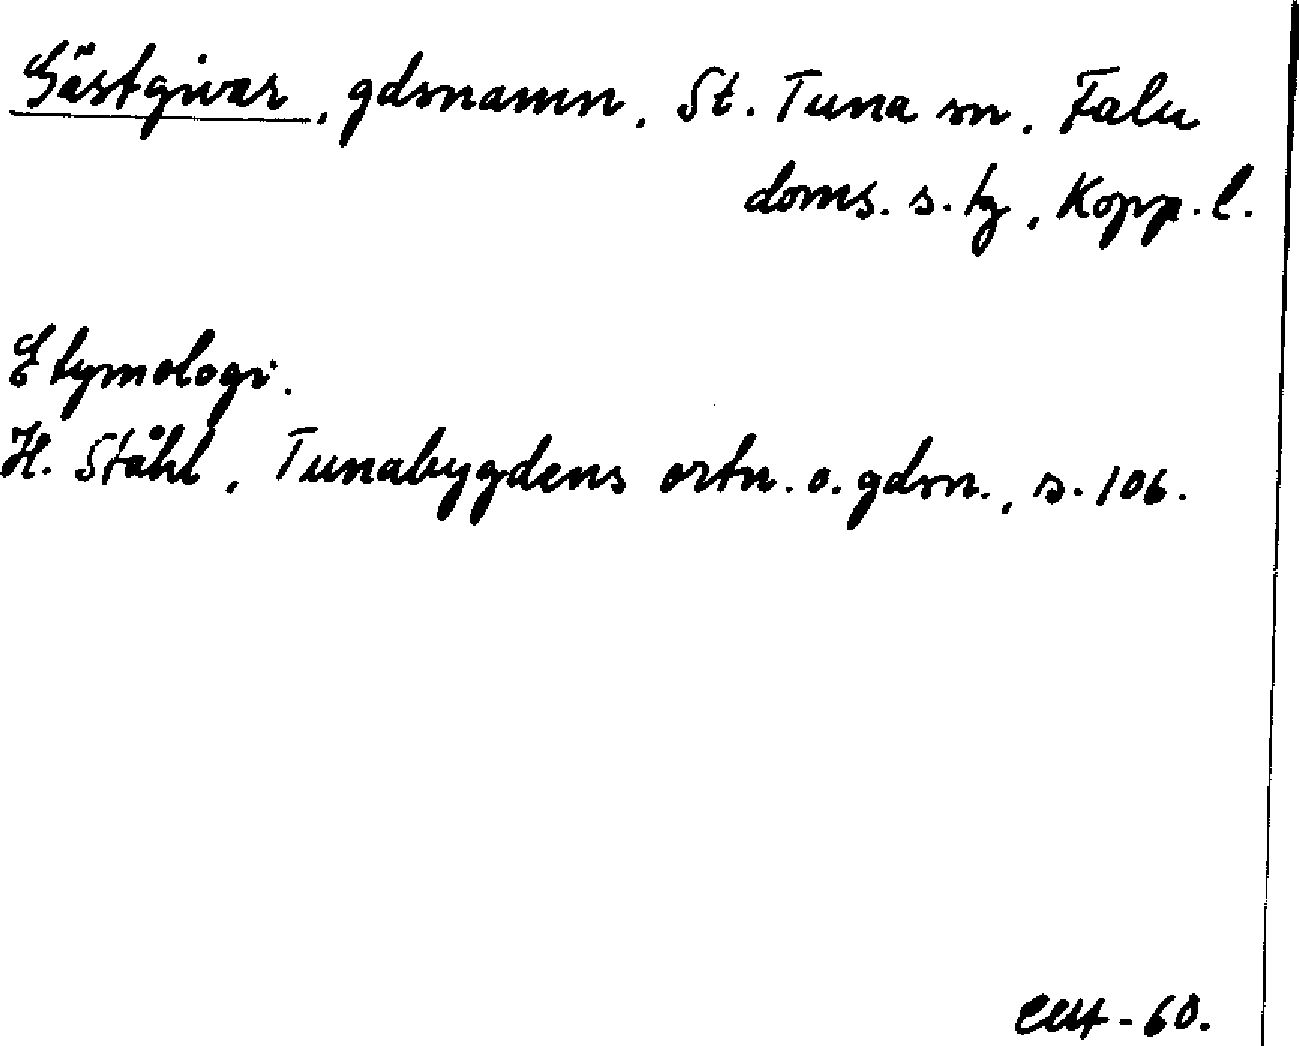 Gästgivar, gdsnamn, St. Tuna sn, Falu
doms. s. tg, Kopp. l.
Etymologi.
H. Ståhl, Tunabygdens ortn. o. gdsn., s. 106.
-60.